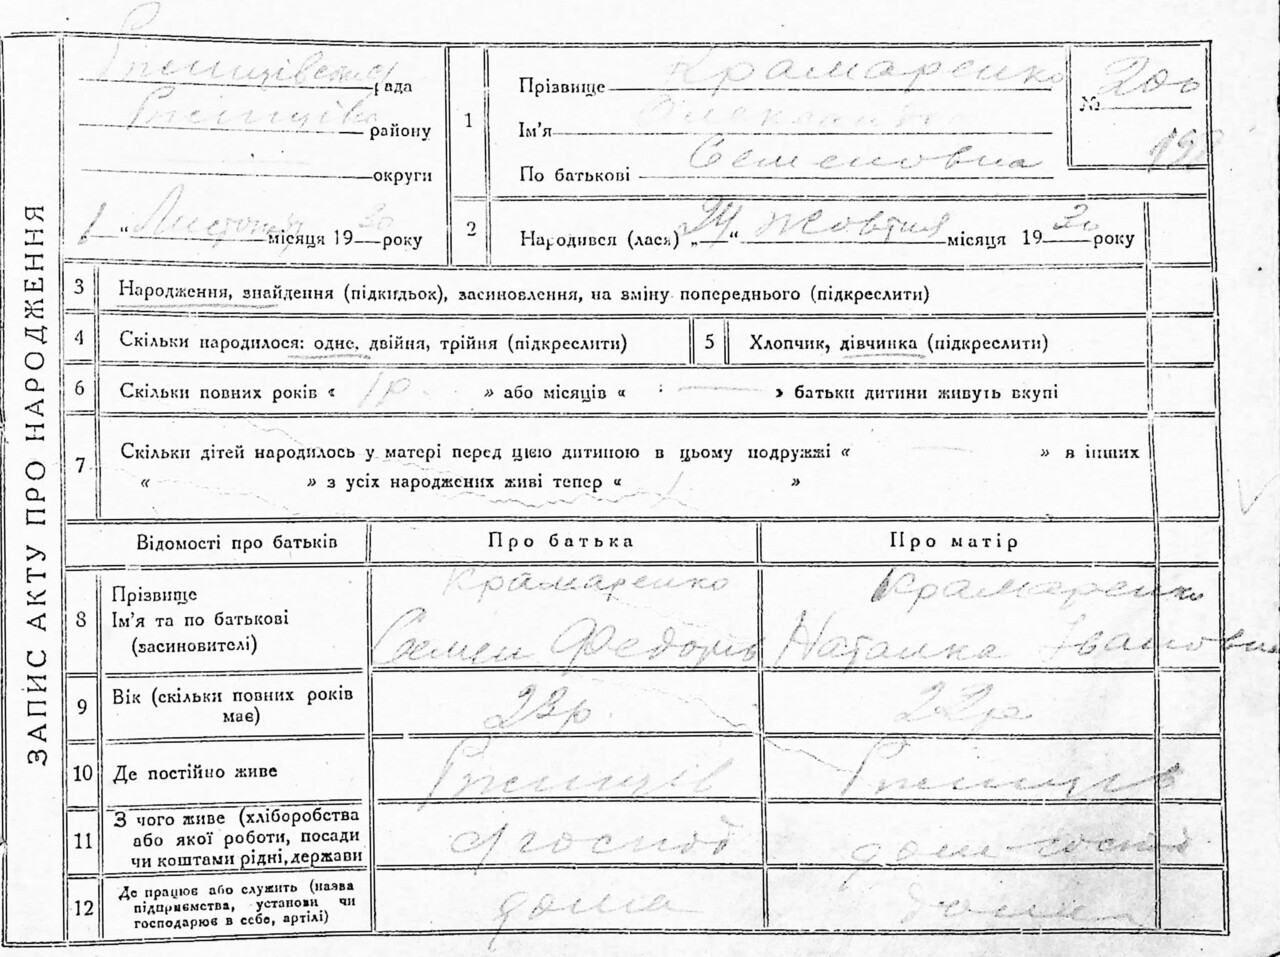 ЗАПИС АКТУ ПРО НАРОДЖЕННЯ
рада
району
округи
1 " Листопад місяця 19 30 року
1
Прізвище Крамаренко
Ім'я Олександра
По батькові Семеновна
№ 200
2
Народився (лася) „ 24 “ Жовтня місяця 19 30 року
3 Народження, знайдення (підкидьок), засиновлення, на зміну попереднього (підкреслити)
4 Скільки народилося: одне, двійня, трійня (підкреслити)
5 Хлопчик, дівчинка (підкреслити)
6 Скільки повних років « 1р. » або місяців « » батьки дитини живуть вкупі
7 Скільки дітей народилось у матері перед цією дитиною в цьому подружжі « » в інших
« » з усіх народжених живі тепер « »
Відомості про батьків Про батька Про матір
8 Прізвище
Ім'я та по батькові
(засиновителі)
Крамаренко
Семен Федорів
Крамаренко
Наталка Івановна
9 Вік (скільки повних років
має)
23р. 22р
10 Де постійно живе Ржищів Ржищів
11 З чого живе (хліборобства
або якої роботи, посади
чи коштами рідні, держави
12 Де працює або служить (назва
підприємства, установи чи
господарює в себе, артілі)
дома дома